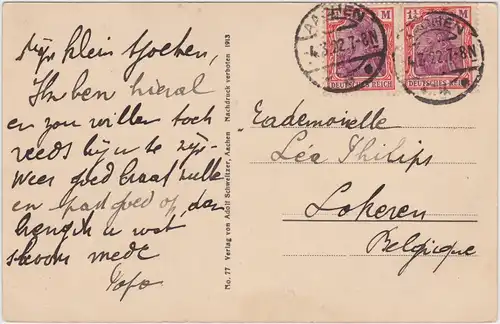 Mijn klein
Ik ben hier al
en zou willen toch
reeds bij u te zijn
Weer goed braaf zulle
en past goed op, dan
breng ik u wat
schoon mede
No. 77 Verlag von Adolf Schweitzer, Aachen Nachdruck verboten 1913
AACHEN
4.3.22.7-8N
M
DEUTSCHES REICH
1¼ M
4.3.22.7-8N
DEUTSCHES REICH
Mademoiselle
Léa Philips
Lokeren
Belgique